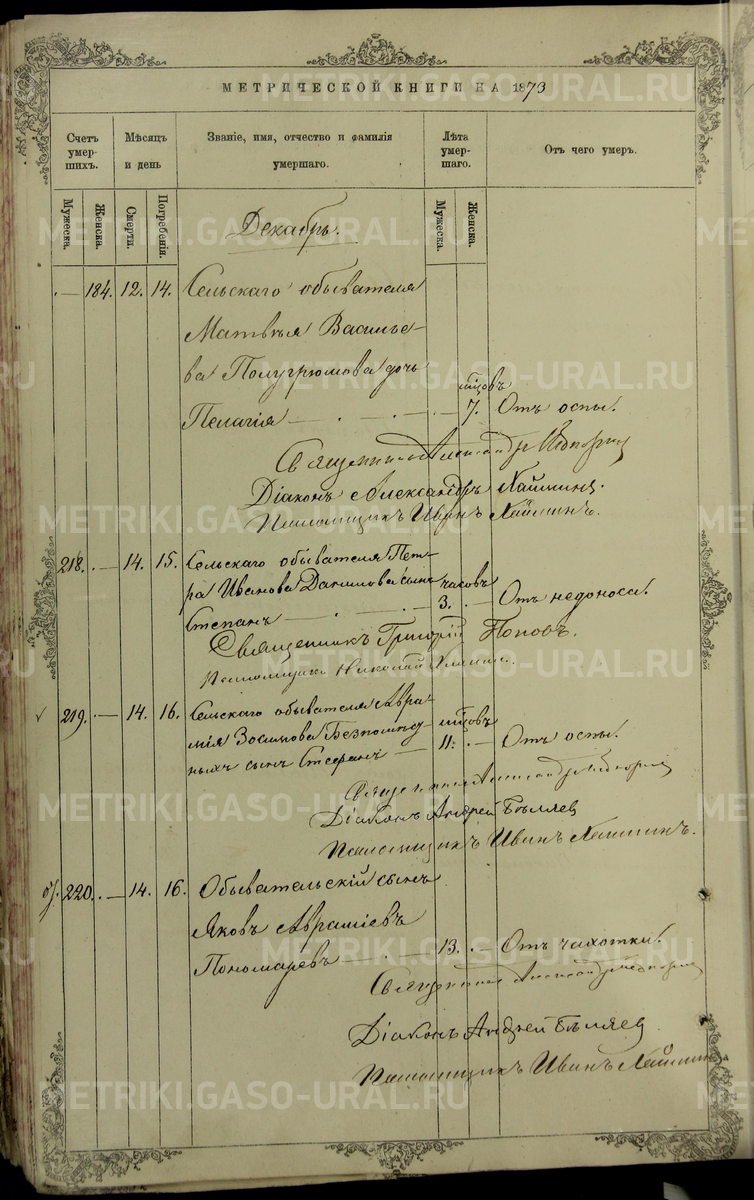 МЕТРИЧЕСКОЙ КНИГИ НА 1873
Счетъ умер-шихъ.
Мѣсяцъ и день
Званіе, имя, отчество и фамилія умершаго.
Лѣта умер-шаго.
Отъ чего умеръ.
Мужеска.
Женска.
Смерти.
Погребенія.
Мужеска.
Женска.
Декабрь.
184. 12. 14. Сельскаго обывателя
Матвѣя Василье-
ва Полугрюмова дочь
мцовъ
Пелагія 7. Отъ оспы.
Священникъ
Діаконъ Александръ Наймшинъ.
Псаломщикъ Иванъ Наймшинъ.
218. 14. 15. Сельскаго обывателя Пет-
ра Иванова Данилова сынъ часовъ
Степанъ 3. Отъ недоноса.
Священникъ Григорій Поповъ.
Псаломщикъ Николай
219. 14. 16. Сельскаго обывателя Авра-
мія Зосимова Безпомощ- мцовъ
ныхъ сынъ Стефанъ 11. Отъ оспы.
Священникъ
Діаконъ Андрей Бѣляев
Псаломщикъ Иванъ Наймшинъ.
220. 14. 16. Обывательскій сынъ
Яковъ Авраміевъ
Пономаревъ 13. Отъ чахотки.
Священникъ
Діаконъ Андрей Бѣляев
Псаломщикъ Иванъ Наймшинъ
METRIKI.GASO-URAL.RU